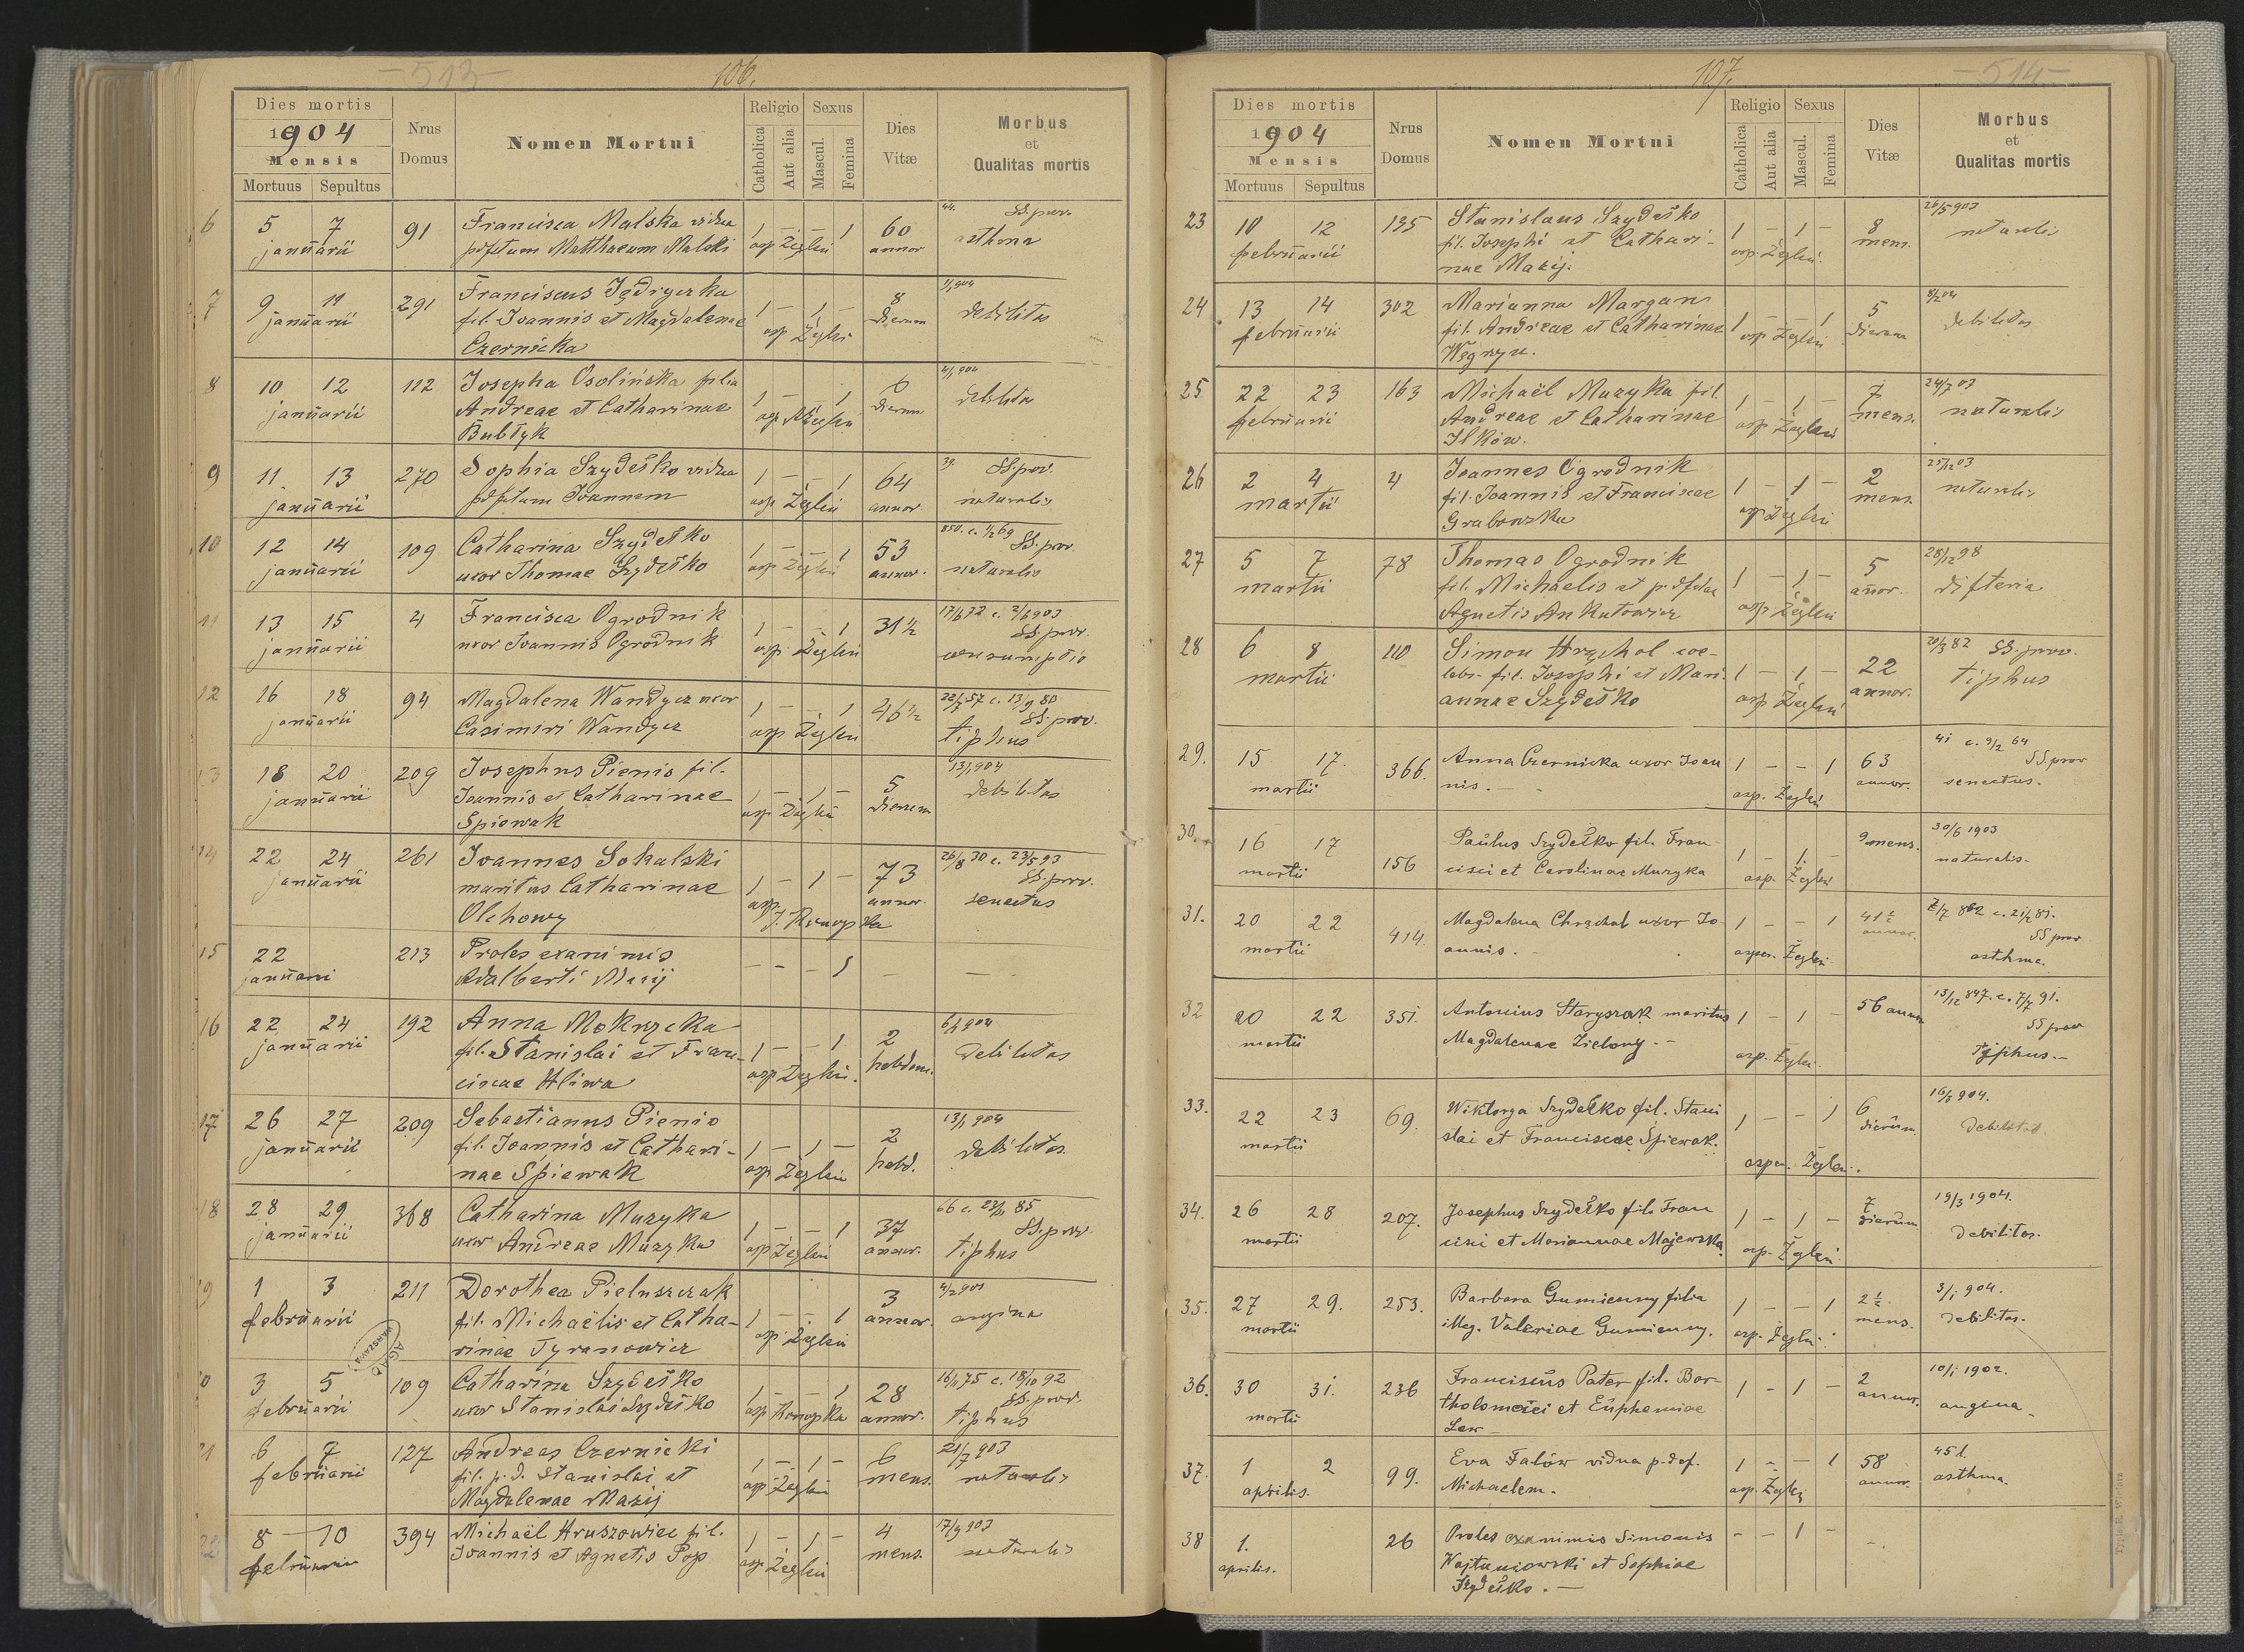 -513-
106.
Dies mortis
1904
Mensis
Mortuus Sepultus
Nrus Domus
Nomen Mortui
Religio
Catholica
Aut alia
Sexus
Mascul.
Femina
Dies Vitæ
Morbus
et
Qualitas mortis
6 5 7 91 Francisca Malska vidua 1 - - 1 60 44. SS.prov.
januarii pdfctum Matthaeum Malski asp Żegleń annor asthma
7 9 11 291 Franciscus Jędryczka 1 - 1 - 8 1/1 904
januarii fil. Joannis et Magdalenae asp Żegleń dierum debilitas
Czernicka
8 10 12 112 Josepha Osolińska filia 1 - - 1 6 4/1 904
januarii Andreae et Catharinae asp dierum debilitas
Bubłyk
9 11 13 270 Sophia Szydełko vidua 1 - - 1 64 39. SS.prov.
januarii pdfctum Joannem asp Żegleń annor. naturalis
10 12 14 109 Catharina Szydełko 1 - - 1 53 850. c. 1/2 69 SS.prov.
januarii uxor Thomae Szydełko asp Żegleń annor. naturalis
11 13 15 4 Francisca Ogrodnik 1 - - 1 31½ 17/6 72 c. 2/6 903
januarii uxor Joannis Ogrodnik asp Żegleń SS.prov.
consumptio
12 16 18 94 Magdalena Wandycz uxor 1 - - 1 46½ 22/7 57 c. 13/9 80
januarii Casimiri Wandycz asp Żegleń SS.prov.
tiphus
13 18 20 209 Josephus Pienio fil. 1 - 1 - 5 13/1 904
januarii Joannis et Catharinae asp Żegleń dierum debilitas
Spiewak
14 22 24 261 Joannes Sokalski 1 - 1 - 73 26/8 30 c. 23/5 93
januarii maritus Catharinae asp. annor. SS.prov.
Olchowy J. Konopka senectus
15 22 213 Proles exanimis - - - 1 - -
januarii Adalberti Mazij
16 22 24 192 Anna Mokrzcka 1 - - 1 2 6/1 904
januarii fil. Stanislai et Fran- asp Żegleń. hebdom. debilitas
ciscae Hliwa
17 26 27 209 Sebastianus Pienio 1 - 1 - 2 13/1 904
januarii fil. Joannis et Cathari- asp Żegleń hebd. debilitas
nae Spiewak
18 28 29 368 Catharina Muzyka 1 - - 1 37 66 c. 22/11 85
januarii uxor Andreae Muzyka asp Żegleń annor. SS.prov.
tiphus
19 1 3 211 Dorothea Pieluszczak 1 - - 1 3 4/2 901
februarii fil. Michaëlis et Catha- asp Żegleń annor. angina
rinae Tyranowicz
AGAD WARSZAWA
20 3 5 109 Catharina Szydełko 1 - - 1 28 16/11 75 c. 18/10 92
februarii uxor Stanislai Szydełko asp Konopka annor. SS.prov.
tiphus
21 6 7 127 Andreas Czernicki 1 - 1 - 6 21/7 903
februarii fil. p.d. Stanislai et asp Żegleń mens. naturalis
Magdalenae Mazij
22 8 10 394 Michaël Hruszowiec fil. 1 - 1 - 4 17/9 903
februarii Joannis et Agnetis Pop asp Żegleń mens. naturalis
107.
-514-
Dies mortis
1904
Mensis
Mortuus Sepultus
Nrus Domus
Nomen Mortui
Religio
Catholica
Aut alia
Sexus
Mascul.
Femina
Dies Vitæ
Morbus
et
Qualitas mortis
23 10 12 135 Stanislaus Szydełko 1 - 1 - 8 26/5 903
februarii fil. Josephi et Cathari- asp. Żegleń. mens. naturalis
nae Mazij.
24 13 14 302 Marianna Margan 1 - - 1 5 8/2 04
februarii fil. Andreae et Catharinae asp Żegleń dierum debilitas
Węgrzyn.
25 22 23 163 Michaël Muzyka fil. 1 - 1 - 7 24/7 03
februarii Andreae et Catharinae asp Żegleń mens. naturalis
Ilków.
26 2 4 4 Joannes Ogrodnik 1 - 1 - 2 25/12 03
martii fil. Joannis et Franciscae asp Żegleń mens. naturalis
Grabowska
27 5 7 78 Thomas Ogrodnik 1 - 1 - 5 28/12 98
martii fil. Michaëlis et p. dfctae asp Żegleń annor. difteria
Agnetis Ankutowicz
28 6 8 110 Simon Hrąchol coe- 1 - 1 - 22 20/3 82 SS.prov.
martii lebs. fil. Josephi et Mari- asp Żegleń annor. tiphus
annae Szydełko
29. 15 17. 366. Anna Czernicka uxor Joan 1 - - 1 63 41 c. 9/2 64
martii nis. - asp. Żegleń annor. SS prov
senectus.
30. 16 17 156 Paulus Szydełko fil. Fran 1 - 1 - 9 mens. 30/6 1903
martii cisci et Carolinae Muzyka asp. Żegleń naturalis.
31. 20 22 414. Magdalena Chrąchol uxor Jo- 1 - - 1 41½ 2/7 862 c. 21/2 81.
martii annis. - asper. Żegleń annor. SS prov
asthma.
32 20 22 351. Antonius Staryszak maritus 1 - 1 - 56 annor 13/12 847. c. 7/7 91.
martii Magdalenae Zielony. - asp. Żegleń. SS prov
Typhus. -
33. 22 23 69. Wiktorya Szydełko fil. Stani 1 - - 1 6 16/3 904.
martii slai et Franciscae Spiewak. asper. Żegleń. dierum. Debilitas.
34. 26 28 207. Josephus Szydełko fil. Fran 1 - 1 - 7 19/3 1904.
martii cisci et Mariannae Majewska. asp. Żegleń. dierum Debilitas.
35. 27 29. 253. Barbara Gumienny filia 1 - - 1 2½ 3/1 904.
martii illeg. Valeriae Gumienny. asp. Żegleń. mens. Debilitas.
36. 30 31. 236 Franciscus Pater fil. Bar- 1 - 1 - 2 10/1 1902.
martii tholomaei et Euphemiae annor. angina -
Lew -
37. 1 2 99. Eva Falów vidua p. def. 1 - - 1 58 45 l.
aprilis. Michaelem. asp. Żegleń annor. asthma.
38 1. 26 Proles exanimis Simonis - - 1 - -
aprilis. Wojtuniowski et Sophiae
Szydełko. -